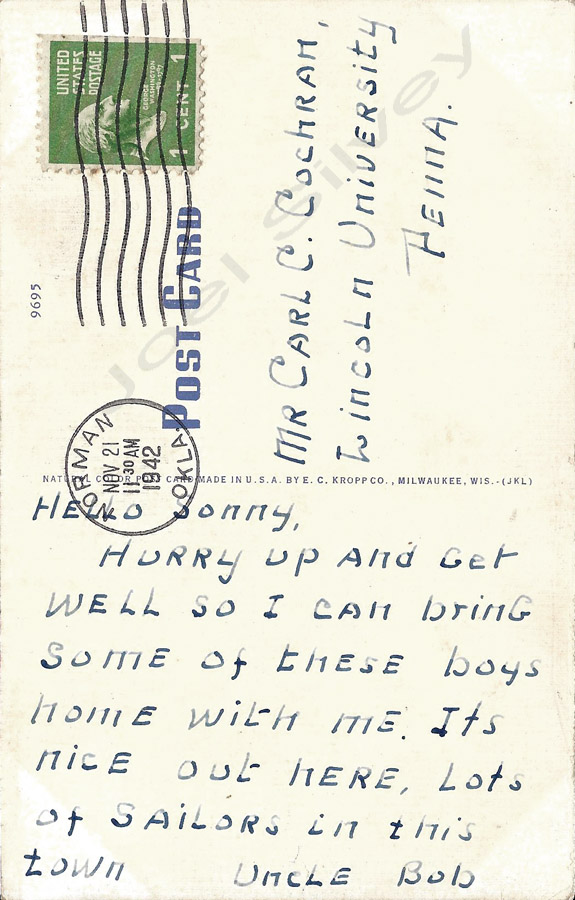 UNITED
STATES
POSTAGE
GEORGE
WASHINGTON
1 CENT 1
POST CARD
9695
NORMAN
NOV 21
11 30 AM
1942
OKLA.
Mr Carl C. Cochran,
Lincoln University
Penna.
NATURAL COLOR POST CARD MADE IN U.S.A. BY E. C. KROPP CO., MILWAUKEE, WIS.-(JKL)
Hello Sonny,
Hurry up and get
well so I can bring
some of these boys
home with me. Its
nice out here, Lots
of Sailors in this
town Uncle Bob
Joel Silvey